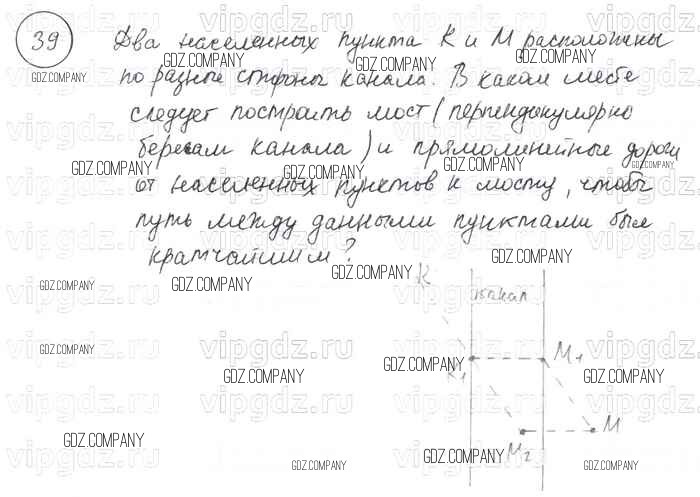 39
Два населенных пункта К и М расположены
по разные стороны канала. В каком месте
следует построить мост (перпендикулярно
берегам канала) и прямолинейные дороги
от населенных пунктов к мосту, чтобы
путь между данными пунктами был
кратчайшим?
К
канал
К₁
М₁
М
М₂
GDZ.COMPANY
vipgdz.ru